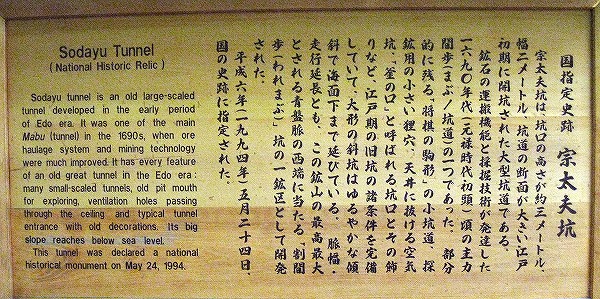 Sodayu Tunnel
( National Historic Relic )
Sodayu tunnel is an old large-scaled
tunnel developed in the early period
of Edo era. It was one of the main
Mabu (tunnel) in the 1690s, when ore
haulage system and mining technology
were much improved. It has every feature
of an old great tunnel in the Edo era :
many small-scaled tunnels, old pit mouth
for exploring, ventilation holes passing
through the ceiling and typical tunnel
entrance with old decorations. Its big
slope reaches below sea level.
This tunnel was declared a national
historical monument on May 24, 1994.
国指定史跡 宗太夫坑
宗太夫坑は、坑口の高さが約三メートル、
幅二メートル、坑道の断面が大きい江戸
初期に開坑された大型坑道である。
鉱石の運搬機能と採掘技術が発達した
一六九〇年代(元禄時代初頭)頃の主力
間歩(まぶ/坑道)の一つであった。部分
的に残る、将棋の駒形の小坑道、探
鉱用の小さい狸穴、天井に抜ける空気
坑、「釜の口」と呼ばれる坑口とその飾
りなど、江戸期の旧坑の諸条件を完備
していて、大形の斜坑はゆるやかな傾
斜で海面下まで延びている。脈幅・
走行延長とも、この鉱山の最高最大
とされる青盤脈の西端に当たる、「割間
歩(われまぶ)」坑の一鉱区として開発
された。
平成六年(一九九四年)五月二十四日、
国の史跡に指定された。